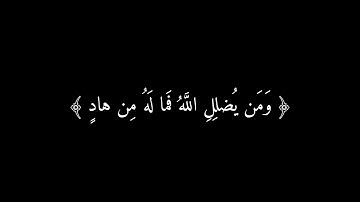 ﴿ وَمَن يُضلِلِ اللَّهُ فَمَا لَهُ مِن هادٍ ﴾